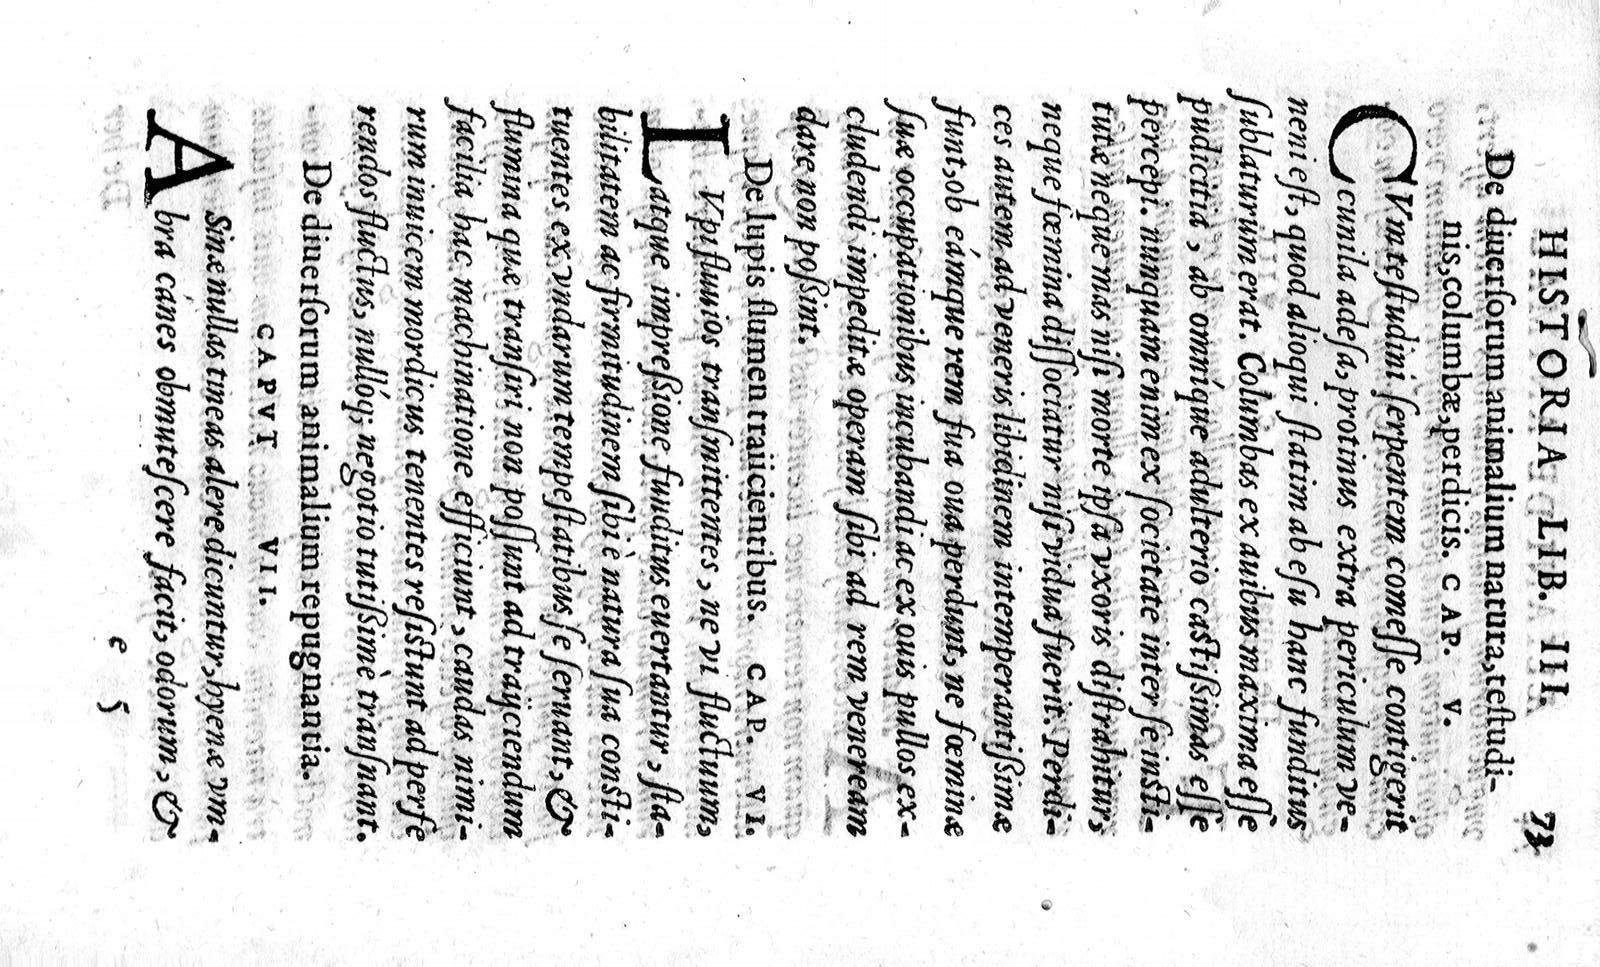 HISTORIA LIB. III. 73
De diuerſorum animalium natura, teſtudi-
nis, columbæ, perdicis. CAP. V.
CVm teſtudini ſerpentem comeſſe contigerit
cunila adeſa, protinus extra periculum ve-
neni eſt, quod alioqui ſtatim ab eſu hanc funditus
ſublaturum erat. Columbas ex auibus maxima eſſe
pudicitia, ab omníque adulterio caſtiſsimas eſſe
percepi. nunquam enim ex ſocietate inter ſe inſti-
tutæ neque mas niſi morte ipſa vxoris diſtrahitur,
neque fœmina diſſociatur niſi vidua fuerit. Perdi-
ces autem ad veneris libidinem intemperantiſsimæ
ſunt, ob eámque rem ſua oua perdunt, ne fœminæ
ſuæ occupationibus incubandi ac ex ouis pullos ex-
cludendi impeditæ operam ſibi ad rem veneream
dare non poſsint.
De lupis flumen traiicientibus. CAP. VI.
LVpi fluuios tranſmittentes, ne vi fluctuum,
atque impreſsione funditus euertantur, ſta-
bilitatem ac firmitudinem ſibi è natura ſua conſti-
tuentes ex vndarum tempeſtatibus ſe ſeruant, &
flumina quæ tranſiri non poſſunt ad trayciendum
facilia hac machinatione efficiunt, caudas nimi-
rum inuicem mordicus tenentes reſiſtunt ad perfe
rendos fluctus, nullóq; negotio tutiſsimè tranſnant.
De diuerſorum animalium repugnantia.
CAPVT VII.
ASinæ nullas tineas alere dicuntur, hyenæ vm-
bra canes obmuteſcere facit, odorum, &
e 5